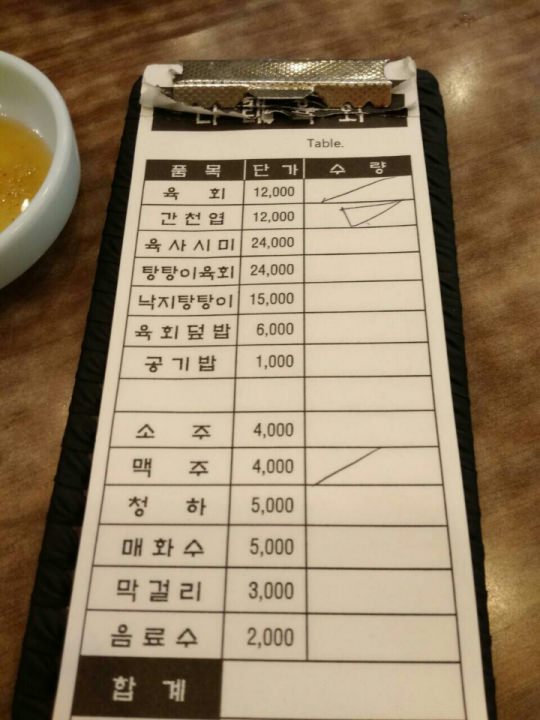 Table.
품 목 단 가 수 량
육 회 12,000
간 천 엽 12,000
육 사 시 미 24,000
탕탕이육회 24,000
낙지탕탕이 15,000
육 회 덮 밥 6,000
공 기 밥 1,000
소 주 4,000
맥 주 4,000
청 하 5,000
매 화 수 5,000
막 걸 리 3,000
음 료 수 2,000
합 계